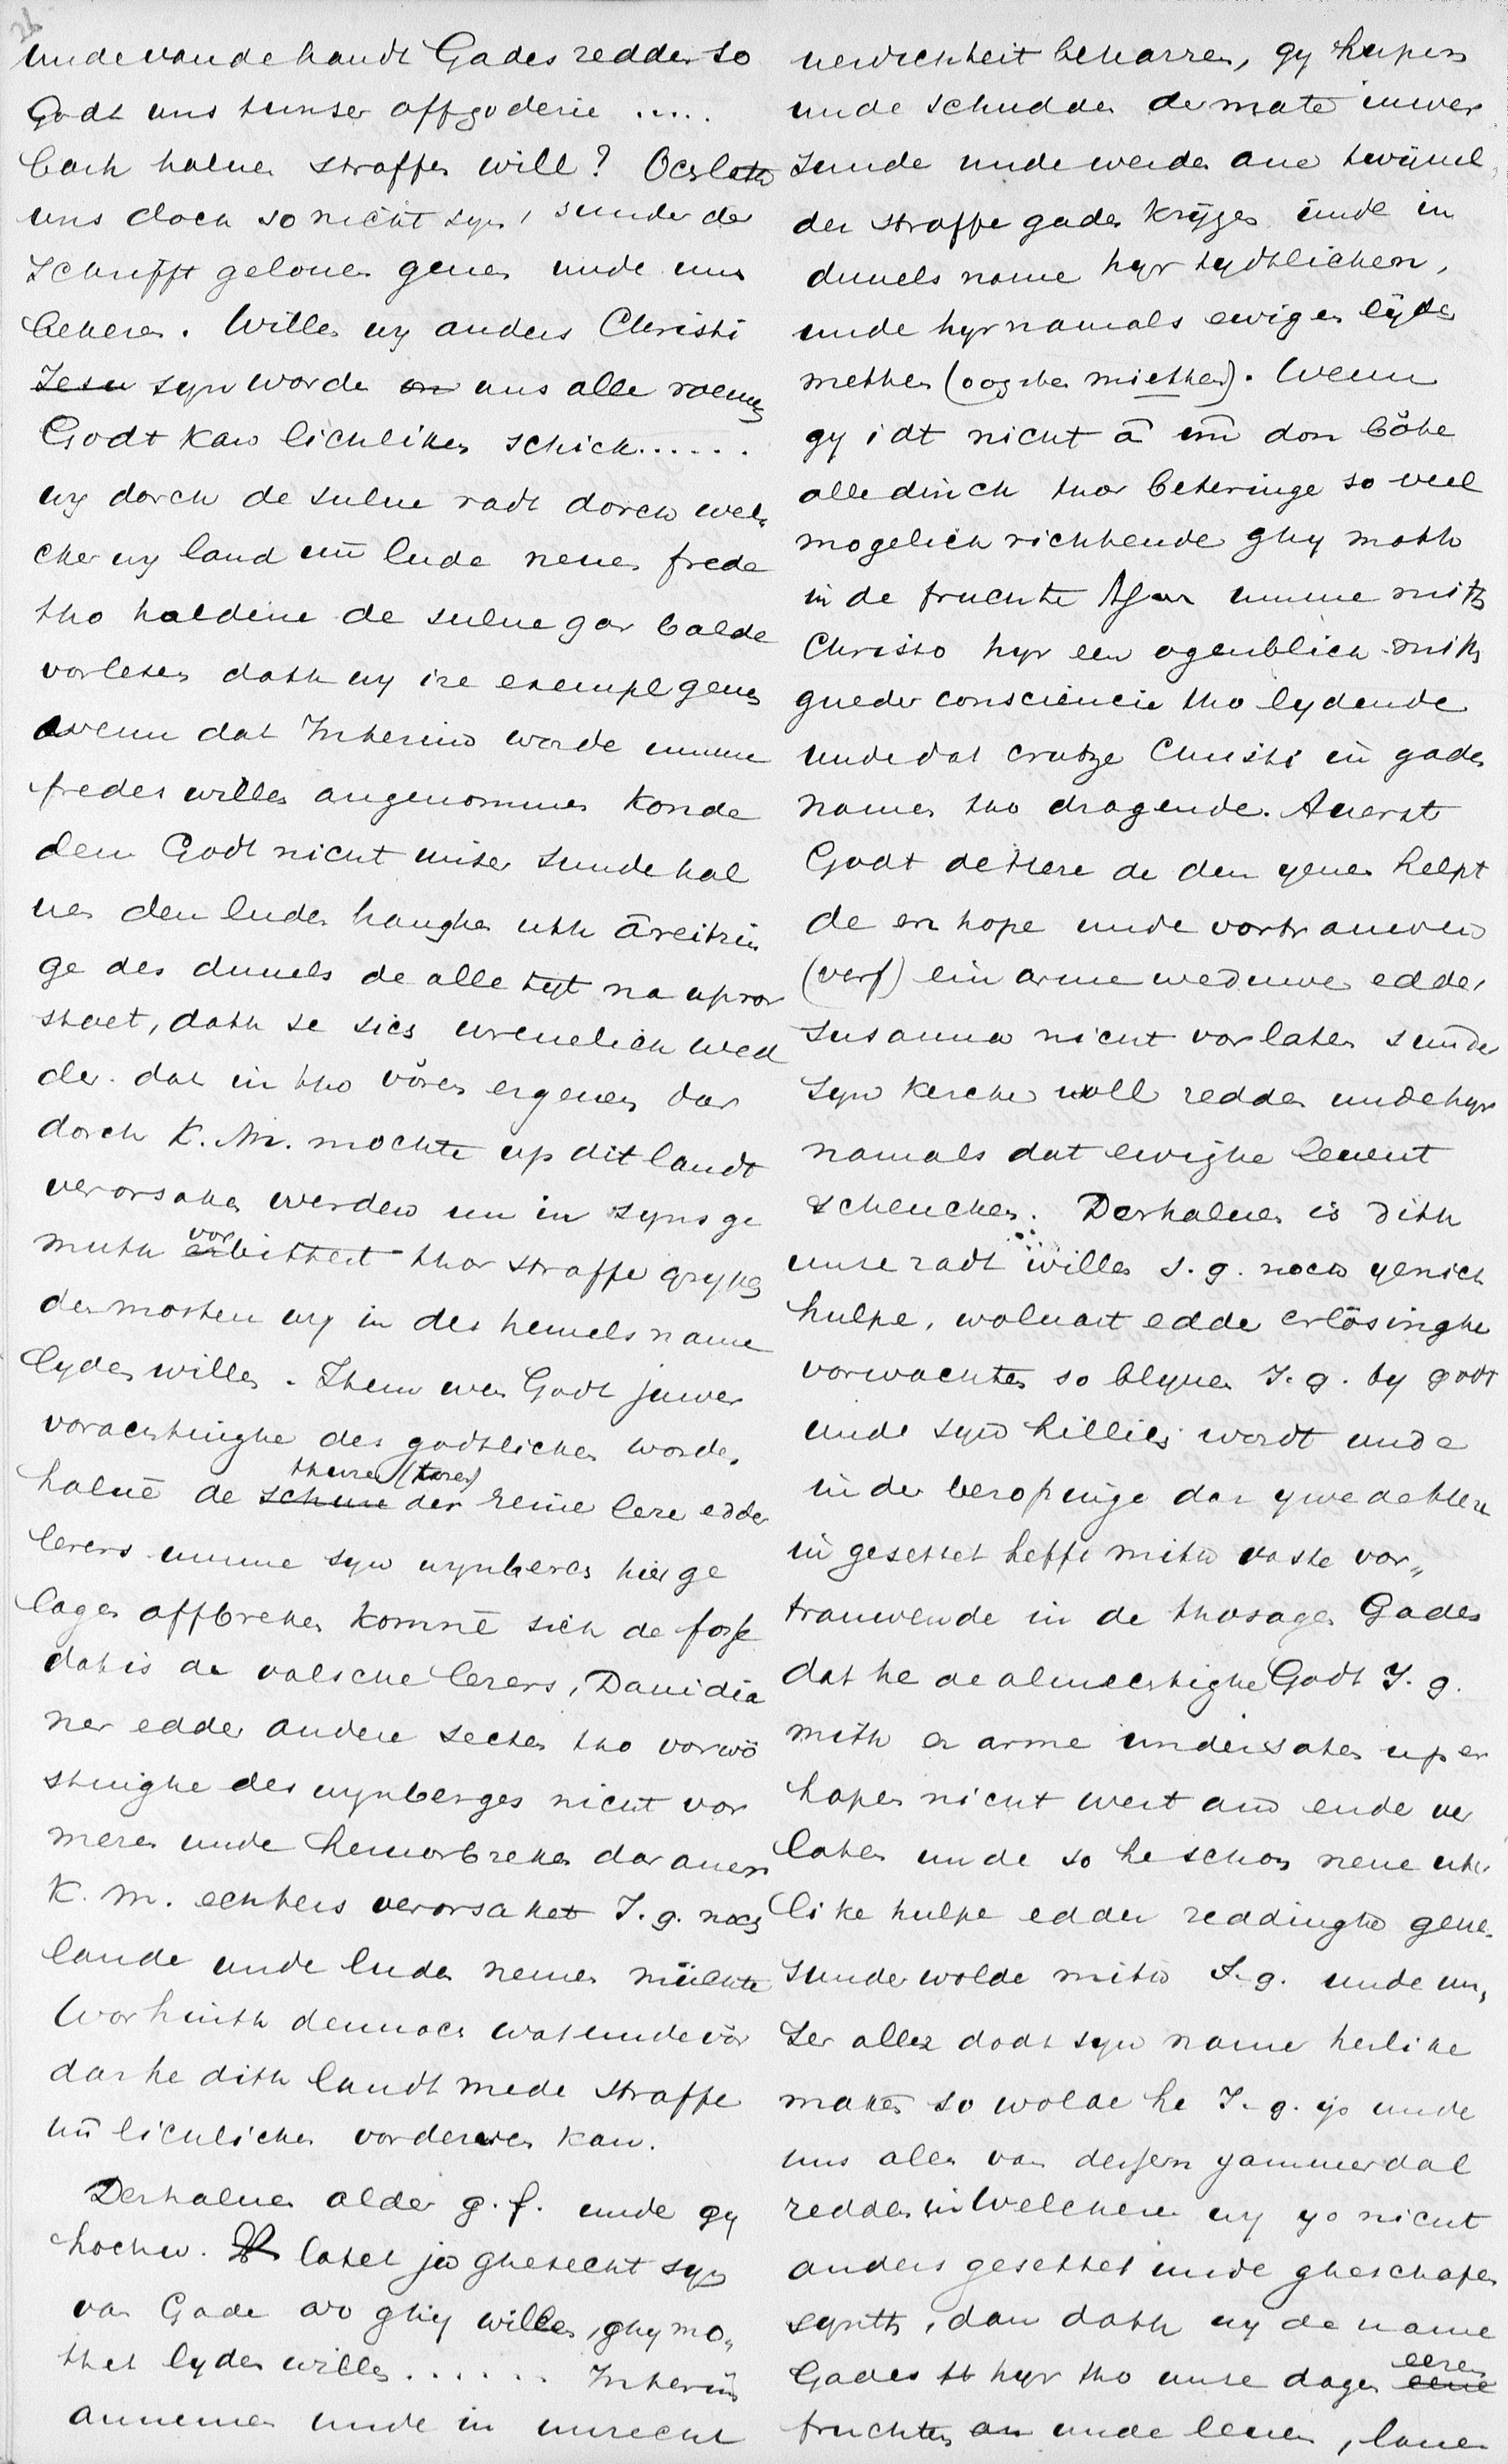 26
unde vande handt Gades redden so
Godt uns umser affgoderie .....
halven straffen will? Och lath
uns doch so nicht syn, sunder der
Schrifft gelouen geuen unde uns
bekeren. Willen wy anders Christi
Jesu syn worde uns alle
Godt kan lichliken schick......
wy dorch de sulue radt dorch wel„
cher wy land uñ lude neuen frede
tho holdene de sulue gar balde
vorlesen dath wy ire exempel geuen
wenn dat Interim worde umme
fredes willen angenommen konde
den Godt nicht unser sunde hal
uen den luden hanghen uth āreitzin
ge des duuels de alle tyt na upror
staet, dath se sich wreuelich wed
der dat in tho vören ergeuen dar
dorch K. M. mochte up dit landt
verorsaket werden un in syns ge
muth vor erbittert thor straffe grypen
den mosten wy in des hemels name
lyden willen. Ihem wen Godt juwer
vorachtinghe des godtlichen wordes
haluē de thuren (toren) schure der reine lere edder
lerers umme syn wynberch her ge
lagen affbreken komnē sich de fosse
dat is de valsche lerers, Dauidia
ner edder andere secten tho vorwö
stinghe des wynberges nicht vor
meren unde henvorbreken dar auen
K. M. echters verorsaket J. g. noch
lande unde luden nemen müchte
Worhinth dennoch wat unde vör
dar he dith landt mede straffe
uñ lichlichen vorderuen kan.
Derhaluen older g. f. unde gy
hochw. latet jw ghesecht syn
van Gade wo ghy willen, ghy mo„
thet lyden willen . . . . . . Interim
annemen unde in unrecht
uewichheit beharren, gy hupen
unde schudden de mate juwer
sunde unde werden ane twiuel,
der straffe gades krÿgen unde in
duuels name hyr tydtlichen,
unde hyrnamals ewigen lÿden
methen (oogsten miethen). Wenn
gy idt nicht ā uñ don böke
alle dinch thor beteringe so veel
mogelich richtende ghy moth
in de fruchte staen umme mith
Christo hyr een ogenblick mith
gueder consciencie tho lydende
unde dat crutze Christi in gades
namen tho dragende. Auerst
Godt de here de den yenen helpt
de en hope unde vortrauwen
(verf) ein arme weduwe edder
Susanna nicht vorlaten sunder
syn kerche woll redden unde hyr
namals dat ewighe leuent
schencken. Derhaluen is dith
unse radt willen J. g. noch yenich
hulpe, woluart edde erlösinghe
vorwachten so blyuen J. g. by godt
unde syn hillich wordt unde
in der beropinge dar ywe de here
in gesettet heffe mith vaste vor„
trauwende in de thosagen Gades
dat he de almechtighe Godt J. g.
mith er arme undersaten up er
hapen nicht wert am ende ver
laten unde so he schon nene uter
like hulpe edder reddinghe geue
sunder wolde mith J. g. unde un„
ser aller dodt syn name herlike
maken so wolde he J. g. jo unde
uns allen van dessen yammerdal
redden in Welchere wy yo nicht
anders gesettet unde gheschapen
synth, dan dath wy de name
Gades hyr tho unse dagen eeren eene
fruchten an unde leuen, louen